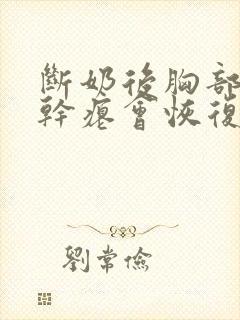 斷奶後胸部
幹癟會恢復
劉常儉